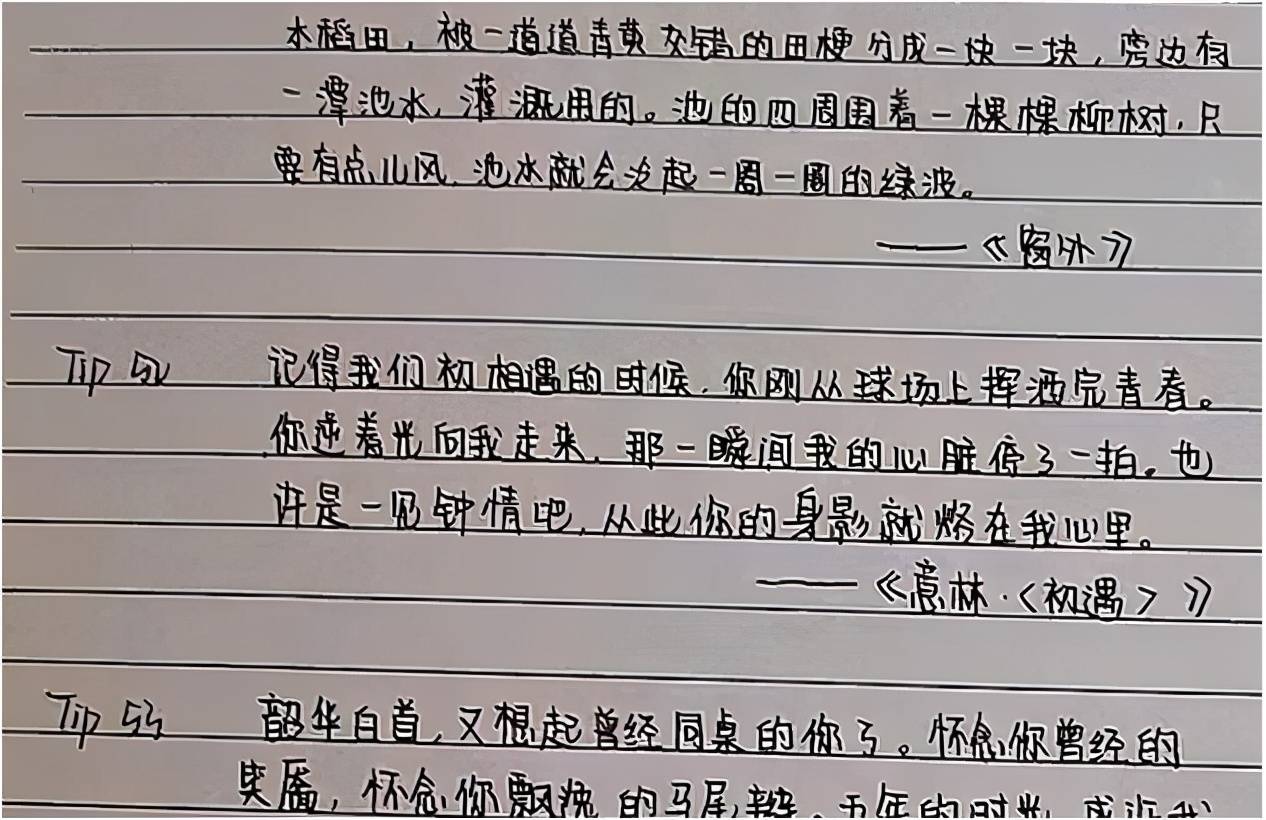 水稻田，被一道道青黄交错的田梗分成一块一块，旁边有
一潭池水，灌溉用的。池的四周围着一棵棵柳树，只
要有点儿风，池水就会泛起一圈一圈的绿波。
——《窗外》
Tip 52 记得我们初相遇的时候，你刚从球场上挥洒完青春。
你逆着光向我走来，那一瞬间我的心脏停了一拍。也
许是一见钟情吧，从此你的身影就烙在我心里。
——《意林·〈初遇〉》
Tip 53 韶华白首，又想起曾经同桌的你了。怀念你曾经的
笑靥，怀念你飘逸的马尾辫。五年的时光